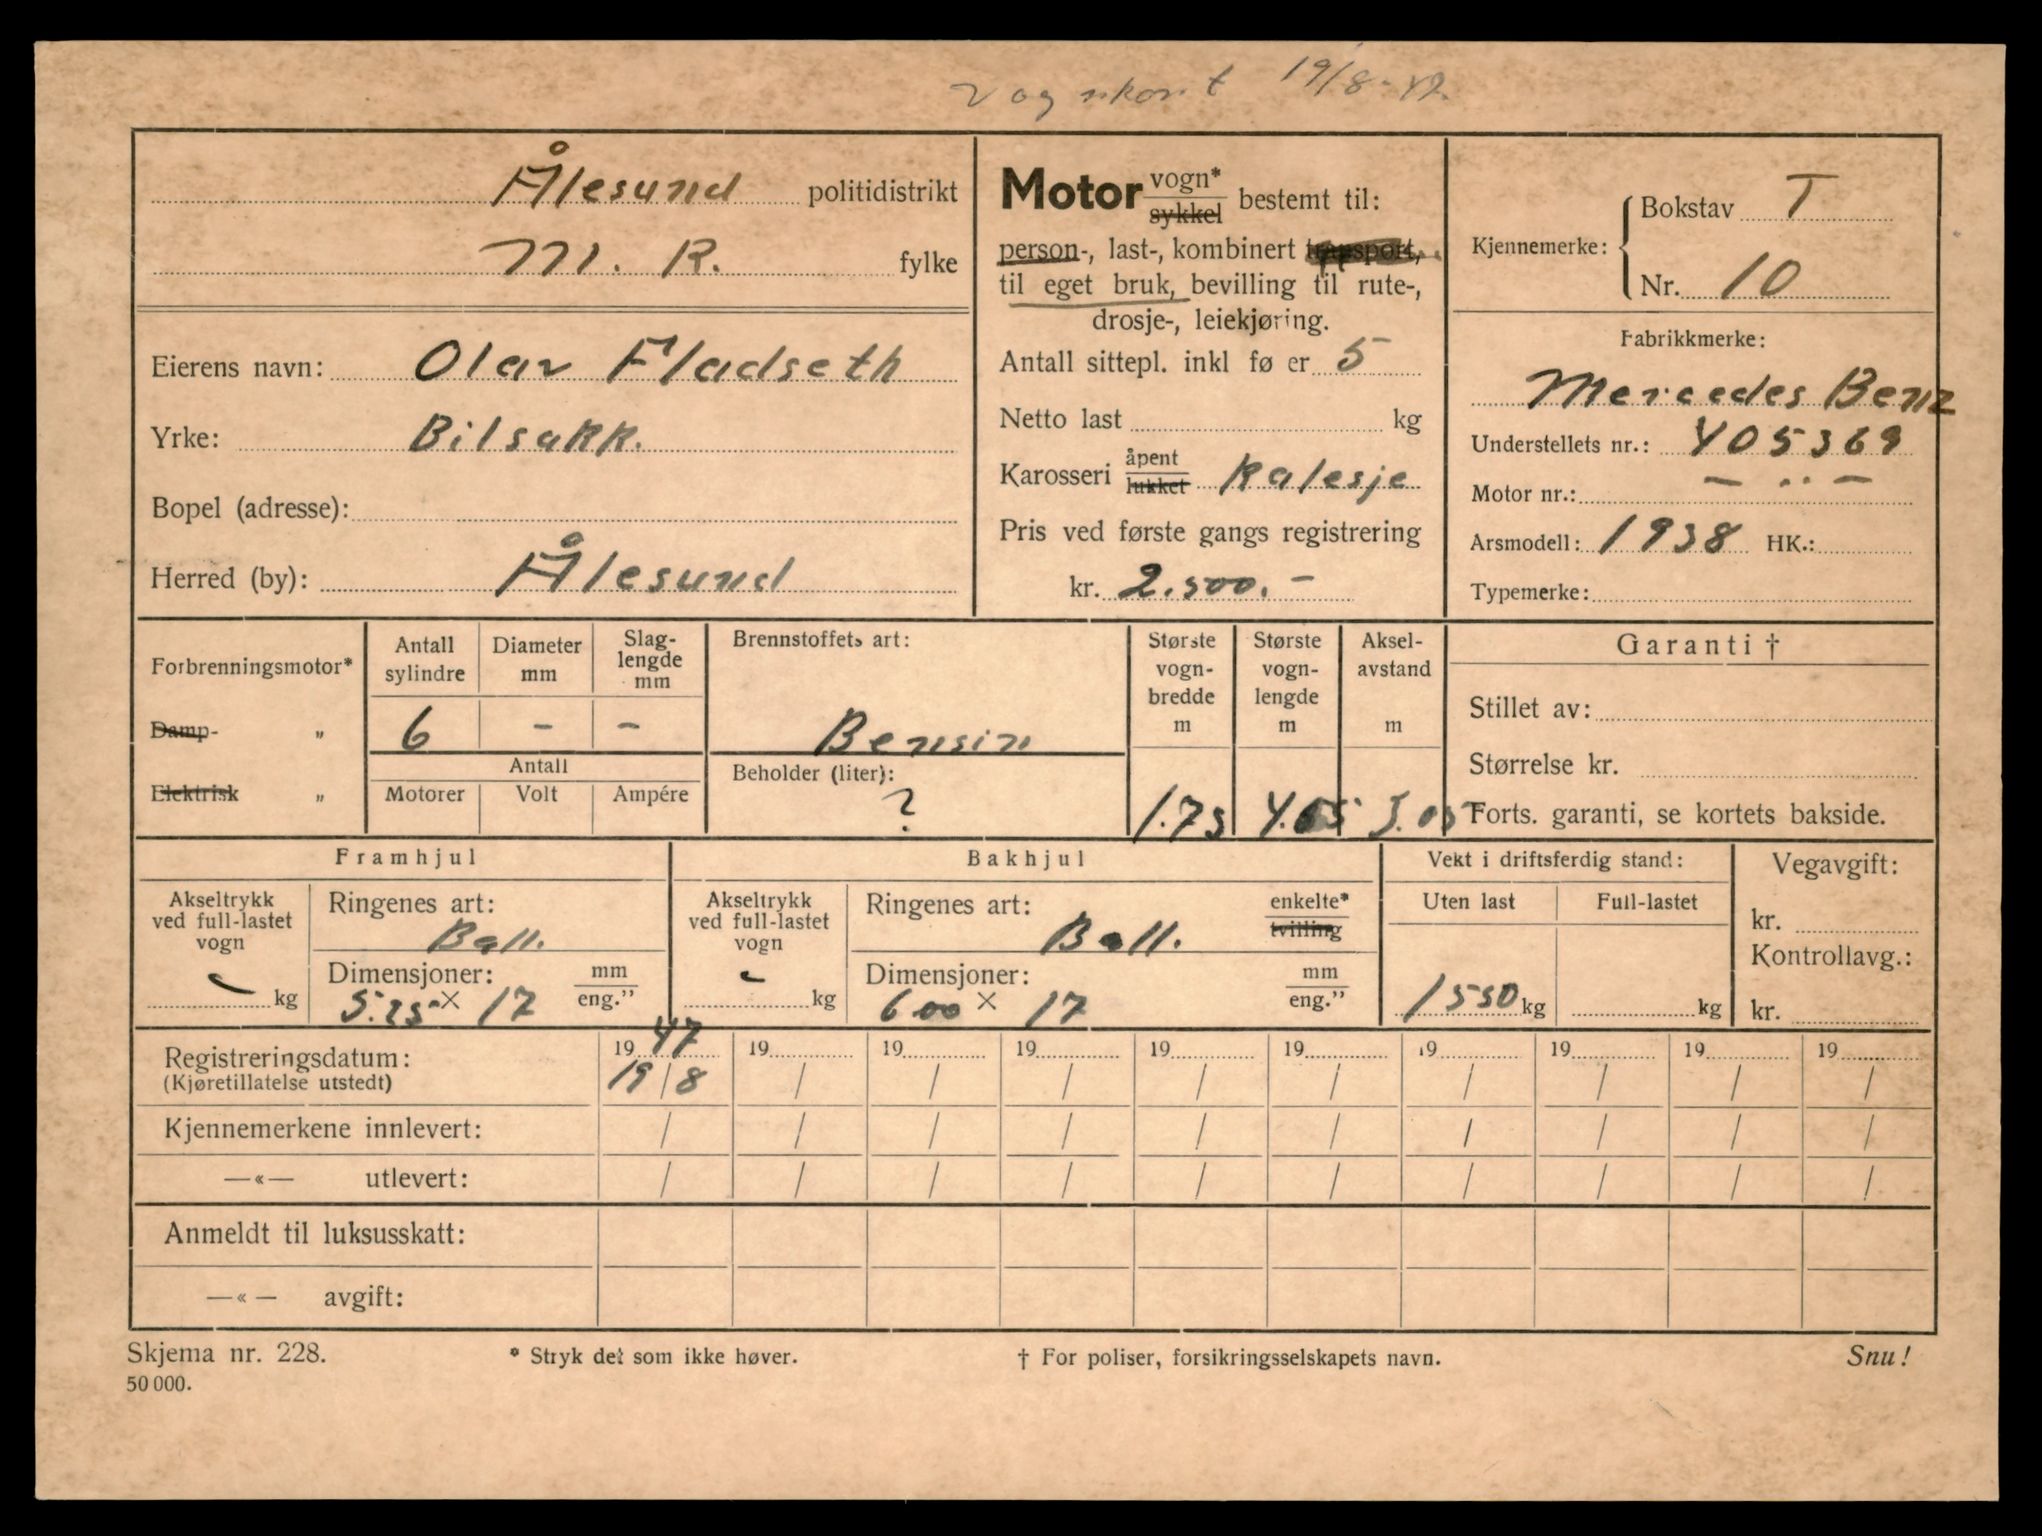 Vognkort 19/8-47.
Ålesund politidistrikt
M. R. fylke
Eierens navn: Olav Fladseth
Yrke: Bilsakk.
Bopel (adresse):
Herred (by): Ålesund
Motor vogn* sykkel bestemt til:
person-, last-, kombinert transport,
til eget bruk, bevilling til rute-,
drosje-, leiekjøring.
Antall sittepl. inkl fø er 5
Netto last kg
Karosseri åpent lukket Kalesje
Pris ved første gangs registrering
kr. 2.500.-
Kjennemerke: Bokstav T
Nr. 10
Fabrikkmerke:
Mercedes Benz
Understellets nr.: 405369
Motor nr.: — ·· —
Arsmodell: 1938 HK.:
Typemerke:
Forbrenningsmotor*
Damp- „
Elektrisk „
Antall sylindre Diameter mm Slag-lengde mm
6 – –
Antall
Motorer Volt Ampére
Brennstoffets art:
Bensin
Beholder (liter):
?
Største vogn-bredde m
1.73
Største vogn-lengde m
Aksel-avstand m
Garanti †
Stillet av:
Størrelse kr.
Forts. garanti, se kortets bakside.
Framhjul
Akseltrykk
ved full-lastet
vogn
– kg
Ringenes art:
Ball.
Dimensjoner: mm
5.25 × 17 eng."
Bakhjul
Akseltrykk
ved full-lastet
vogn
– kg
Ringenes art: enkelte* tvilling
Ball.
Dimensjoner: mm
6 00 × 17 eng."
Vekt i driftsferdig stand:
Uten last Full-lastet
1550 kg kg
Vegavgift:
kr.
Kontrollavg.:
kr.
Registreringsdatum: 1947 19 19 19 19 19 19 19 19 19
(Kjøretillatelse utstedt) 19/8 / / / / / / / / /
Kjennemerkene innlevert: / / / / / / / / / /
—«— utlevert: / / / / / / / / / /
Anmeldt til luksusskatt:
—«— avgift:
Skjema nr. 228. * Stryk det som ikke høver. † For poliser, forsikringsselskapets navn. Snu!
50 000.